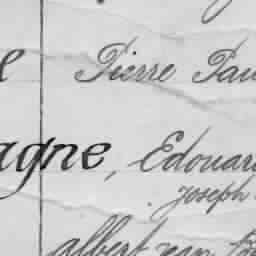 e Pierre Pau
agne, Edouar
Joseph
albert